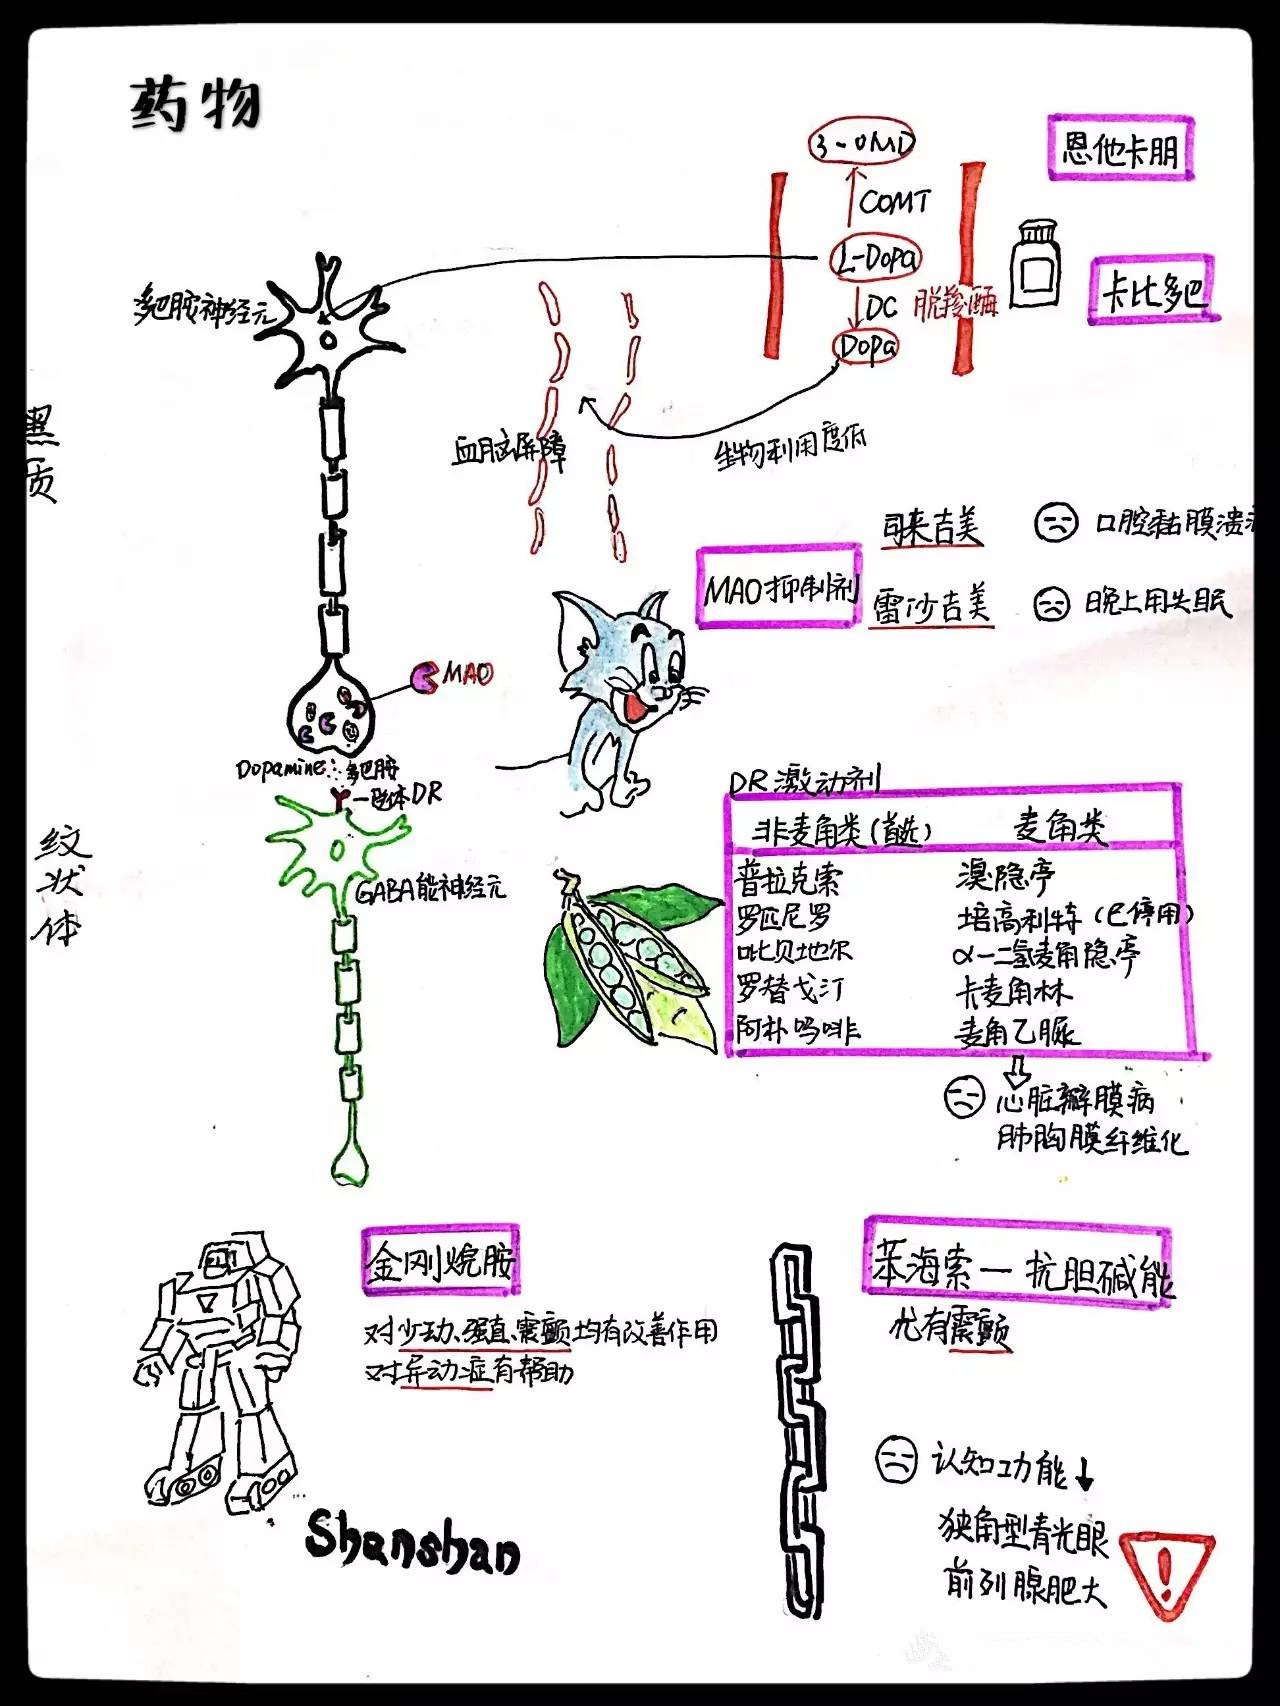 药物
3-OMD
恩他卡朋
COMT
L-Dopa
卡比多巴
DC 脱羧酶
Dopa
多巴胺神经元
黑质
血脑屏障
生物利用度低
司来吉美
口腔黏膜溃
MAO抑制剂
雷沙吉美
晚上用失眠
MAO
Dopamine:多巴胺
受体DR
GABA能神经元
纹状体
DR激动剂
非麦角类(首选) 麦角类
普拉克索 溴隐亭
罗匹尼罗 培高利特(已停用)
吡贝地尔 α-二氢麦角隐亭
罗替戈汀 卡麦角林
阿朴吗啡 麦角乙脲
心脏瓣膜病
肺胸膜纤维化
金刚烷胺
对少动、强直、震颤均有改善作用
对异动症有帮助
苯海索—抗胆碱能
尤有震颤
认知功能↓
狭角型青光眼
前列腺肥大
Shanshan